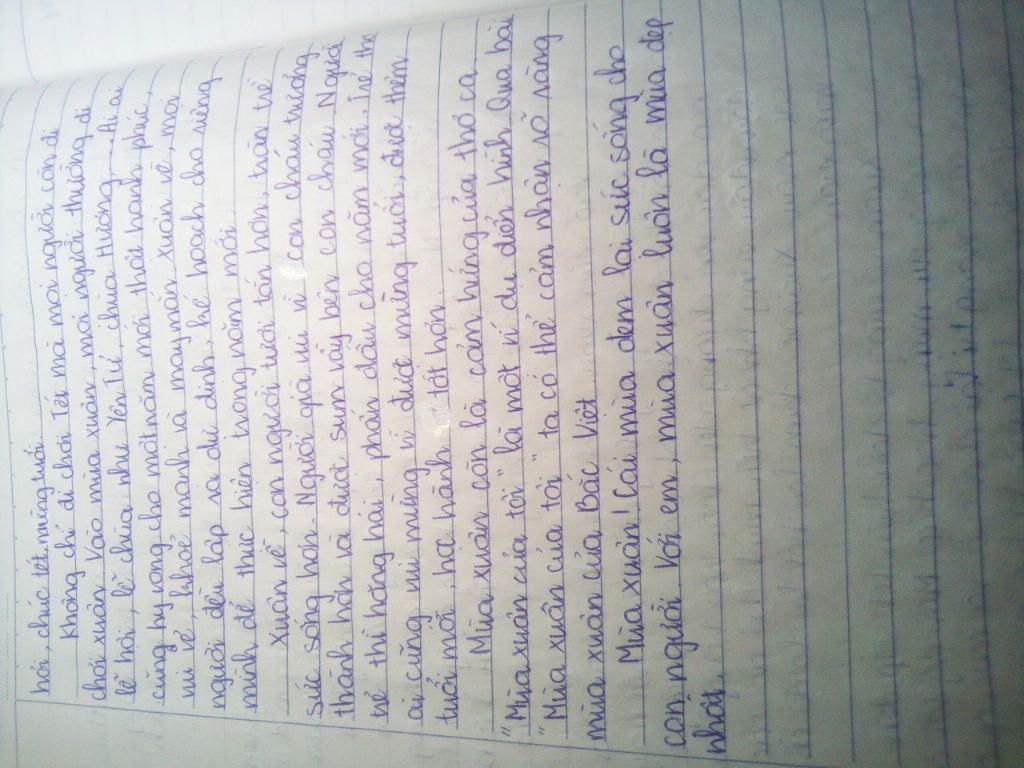 hỏi, chúc tết, mừng tuổi.
Không chỉ đi chơi Tết mà mọi người còn đi
chơi xuân. Vào mùa xuân, mọi người thường đi
lễ hội, lễ chùa như Yên Tử, chùa Hương,... Ai ai
cũng hy vọng cho một năm mới thật hạnh phúc,
vui vẻ, khoẻ mạnh và may mắn. Xuân về, mọi
người đều lập ra dự định, kế hoạch cho riêng
mình để thực hiện trong năm mới.
Xuân về, con người tươi tắn hơn, tràn trề
sức sống hơn. Người già vui vì con cháu trưởng
thành hơn và được sum vầy bên con cháu. Người
trẻ thì hăng hái, phấn đấu cho năm mới. Trẻ thơ
ai cũng vui mừng vì được mừng tuổi, được thêm
tuổi mới, học hành tốt hơn.
Mùa xuân còn là cảm hứng của thơ ca.
"Mùa xuân của tôi" là một ví dụ điển hình. Qua bài
"Mùa xuân của tôi" ta có thể cảm nhận rõ ràng
mùa xuân của Bắc Việt
Mùa xuân! Cái mùa đem lại sức sống cho
con người. Với em, mùa xuân luôn là mùa đẹp
nhất.